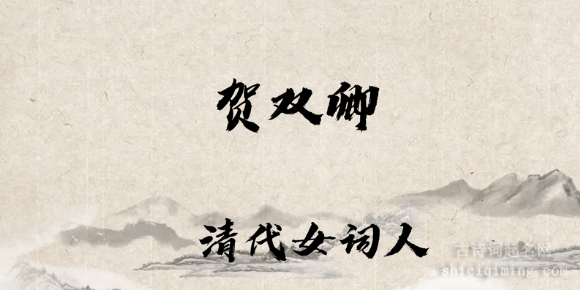 贺双卿
清代女词人
古诗词起名网
shiciqiming.com